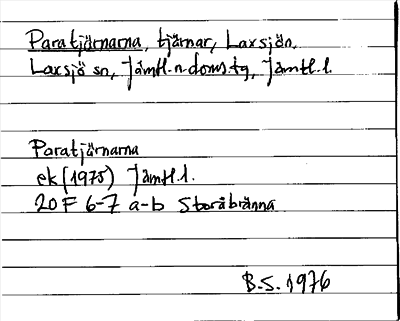 Paratjärnarna, tjärnar, Laxsjön.
Laxsjö sn, Jämtl. n. doms. tg, Jämtl. l.
Paratjärnarna
ek (1975) Jämtl. l.
20 F 6-7 a-b Storåbränna
B.S. 1976